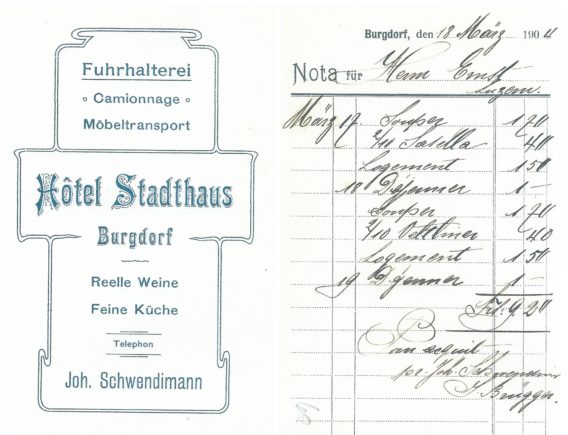 Fuhrhalterei
◦ Camionnage ◦
Möbeltransport
Hôtel Stadthaus
Burgdorf
Reelle Weine
Feine Küche
Telephon
Joh. Schwendimann
Burgdorf, den 18 März 1904
Nota für Herrn Ernst
Luzern.
März 17. Souper 1 70
2/10 Sasella 40
Logement 1 50
18 Déjeuner 1 —
Souper 1 70
2/10 Veltliner 40
Logement 1 50
19 Déjeuner 1 —
Frs. 9.20
Pour acquit
pr. Joh. Schwendimann
J. Brügger.